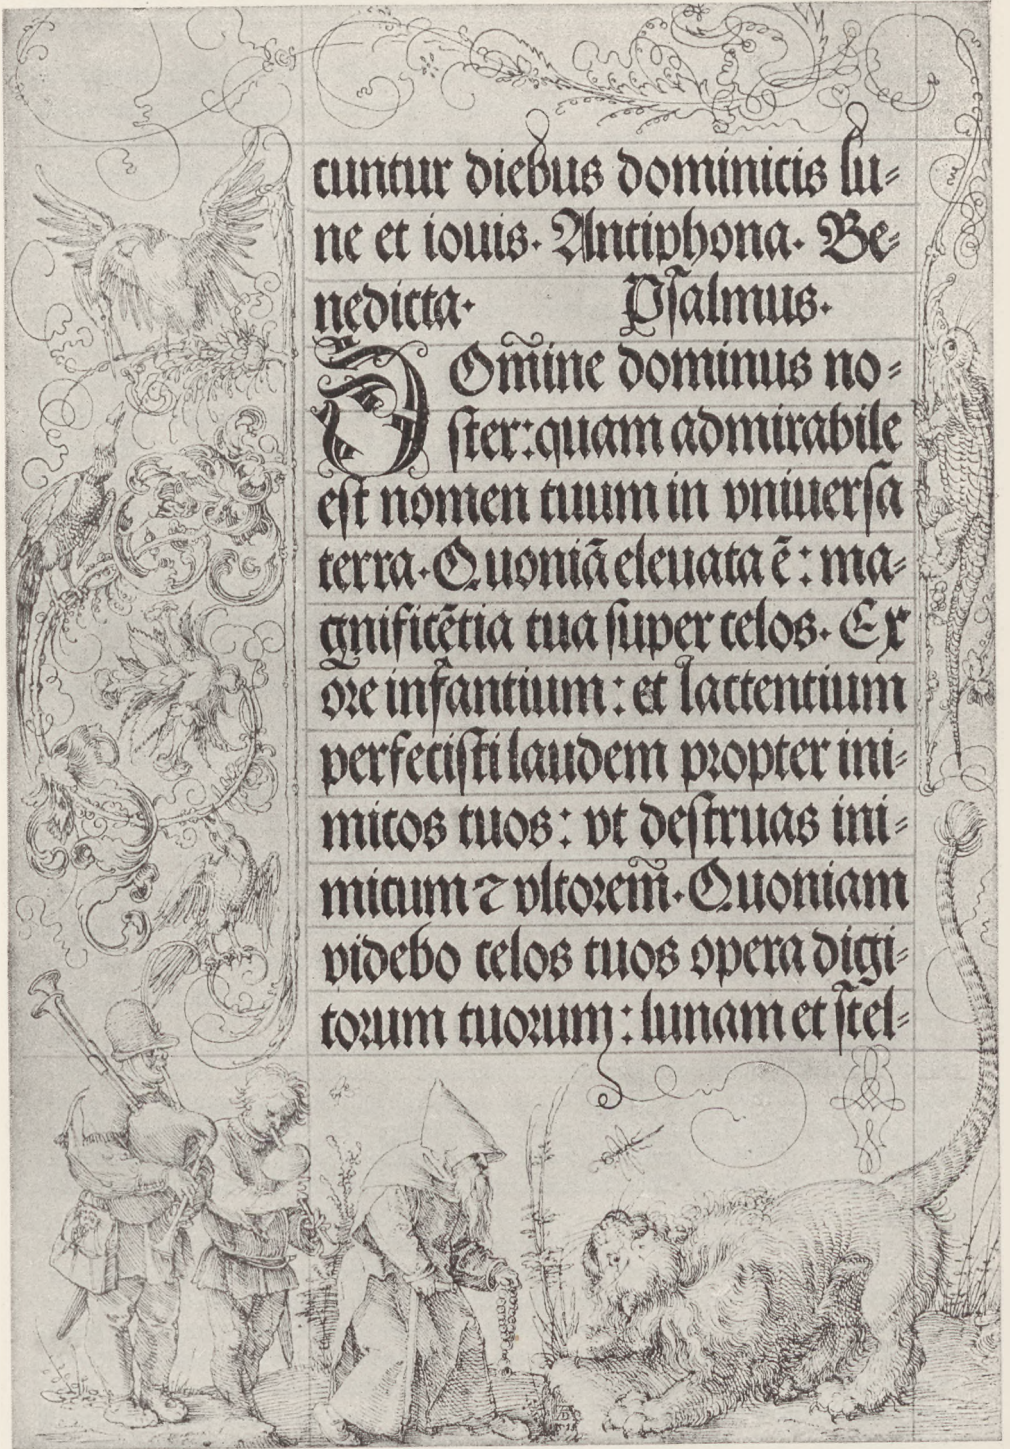 cuntur diebus dominicis lu-
ne et iouis. Antiphona. Be-
nedicta. Psalmus.
Dom̃ine dominus no-
ster: quam admirabile
est nomen tuum in vniuersa
terra. Quoniã eleuata ẽ: ma-
gnificẽtia tua super celos. Ex
ore infantium: et lactentium
perfecisti laudem propter ini-
micos tuos: vt destruas ini-
micum ⁊ vltorem̃. Quoniam
videbo celos tuos opera digi-
torum tuorum: lunam et stel-